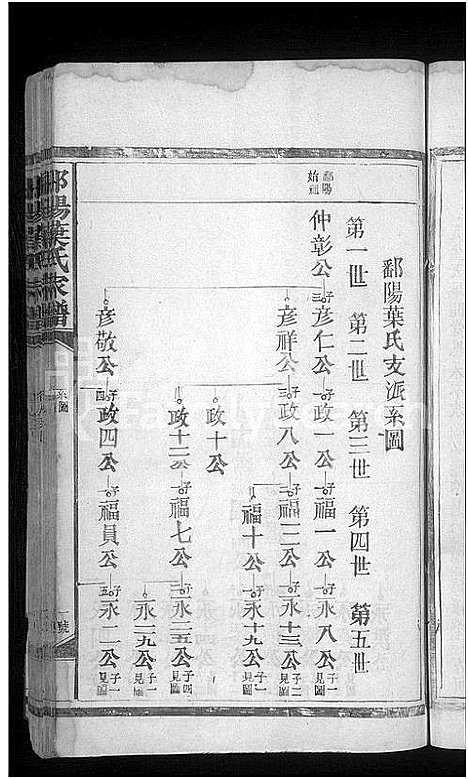 鄱陽葉氏支派系圖
第一世 第二世 第三世 第四世 第五世
鄱陽始祖
仲彰公 彥仁公 政一公 福一公 永八公 子一見圖
彥祥公 政八公 福二公 永十三公 子二見圖
福十公 永十九公 子一見圖
政十公
政十二公 福七公 永二五公 子四見圖
永二九公 子一見圖
彥敬公 政四公 福員公 永二公 子一見圖
鄱陽葉氏家譜
系圖